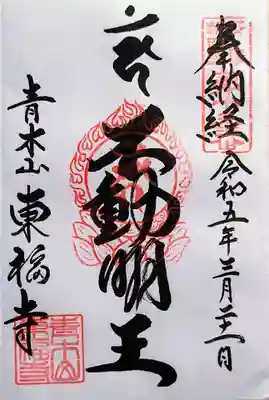 奉納経
令和五年三月二十一日
不動明王
青木山 東福寺